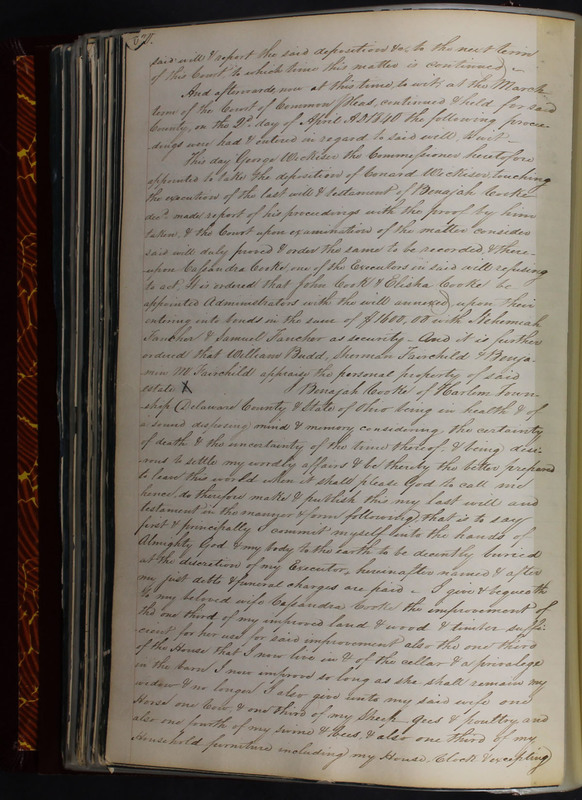 said will & report the said deposition &c to the next term
of this Court to which time this matter is continued –
And afterwards, now at this time, to wit, at the March
term of the Court of Common Pleas, continued & held for said
County, on the 2d day of April AD 1840 the following procee-
dings were had & entered in regard to said will, to wit –
This day George Weckiser the Commissioner heretofore
appointed to take the deposition of Conard Weckiser, touching
the execution of the last will & testament of Benajah Cooke
decd. made report of his proceedings with the proof by him
taken, & the Court upon examination of the matter consider
said will duly proved & order the same to be recorded, & there-
upon Cassandra Cooke, one of the Executors in said will refusing
to act, It is ordered that John Cook & Elisha Cooke be
appointed Administrators with the will annexed, upon their
entering into bonds in the sum of $1600,00 with Nehemiah
Fancher & Samuel Fancher as security – And it is further
ordered that William Budd, Sherman Fairchild & Benja-
min M. Fairchild appraise the personal property of said
estate X I Benajah Cooke of Harlem Town-
ship Delaware County & State of Ohio being in health & of
a sound disposing mind & memory considering the certainty
of death & the uncertainty of the time thereof, & being desi-
rous to settle my wordly affairs & be thereby the better prepared
to leave this world when it shall please God to call me
hence, do therefore make & publish this my last will and
testament in the manner & form following, that is to say
first & principally I commit myself unto the hands of
Almighty God & my body to the earth to be decently buried
at the discretion of my Executor, hereinafter named & after
my just debts & funeral charges are paid – I give & bequeath
to my beloved wife Cassandra Cooke the improvement of
the one third of my improved land & wood & timber suffi-
cient for her use for said improvement also the one third
of the House that I now live in & of the cellar & a privalege
in the barn I now improve so long as she shall remain my
widow & no longer I also give unto my said wife one
Horse one Cow, & one third of my Sheep, Gees & poultry and
also one fourth of my swine & Bees, & also one third of my
Household furniture including my House Clock & excepting